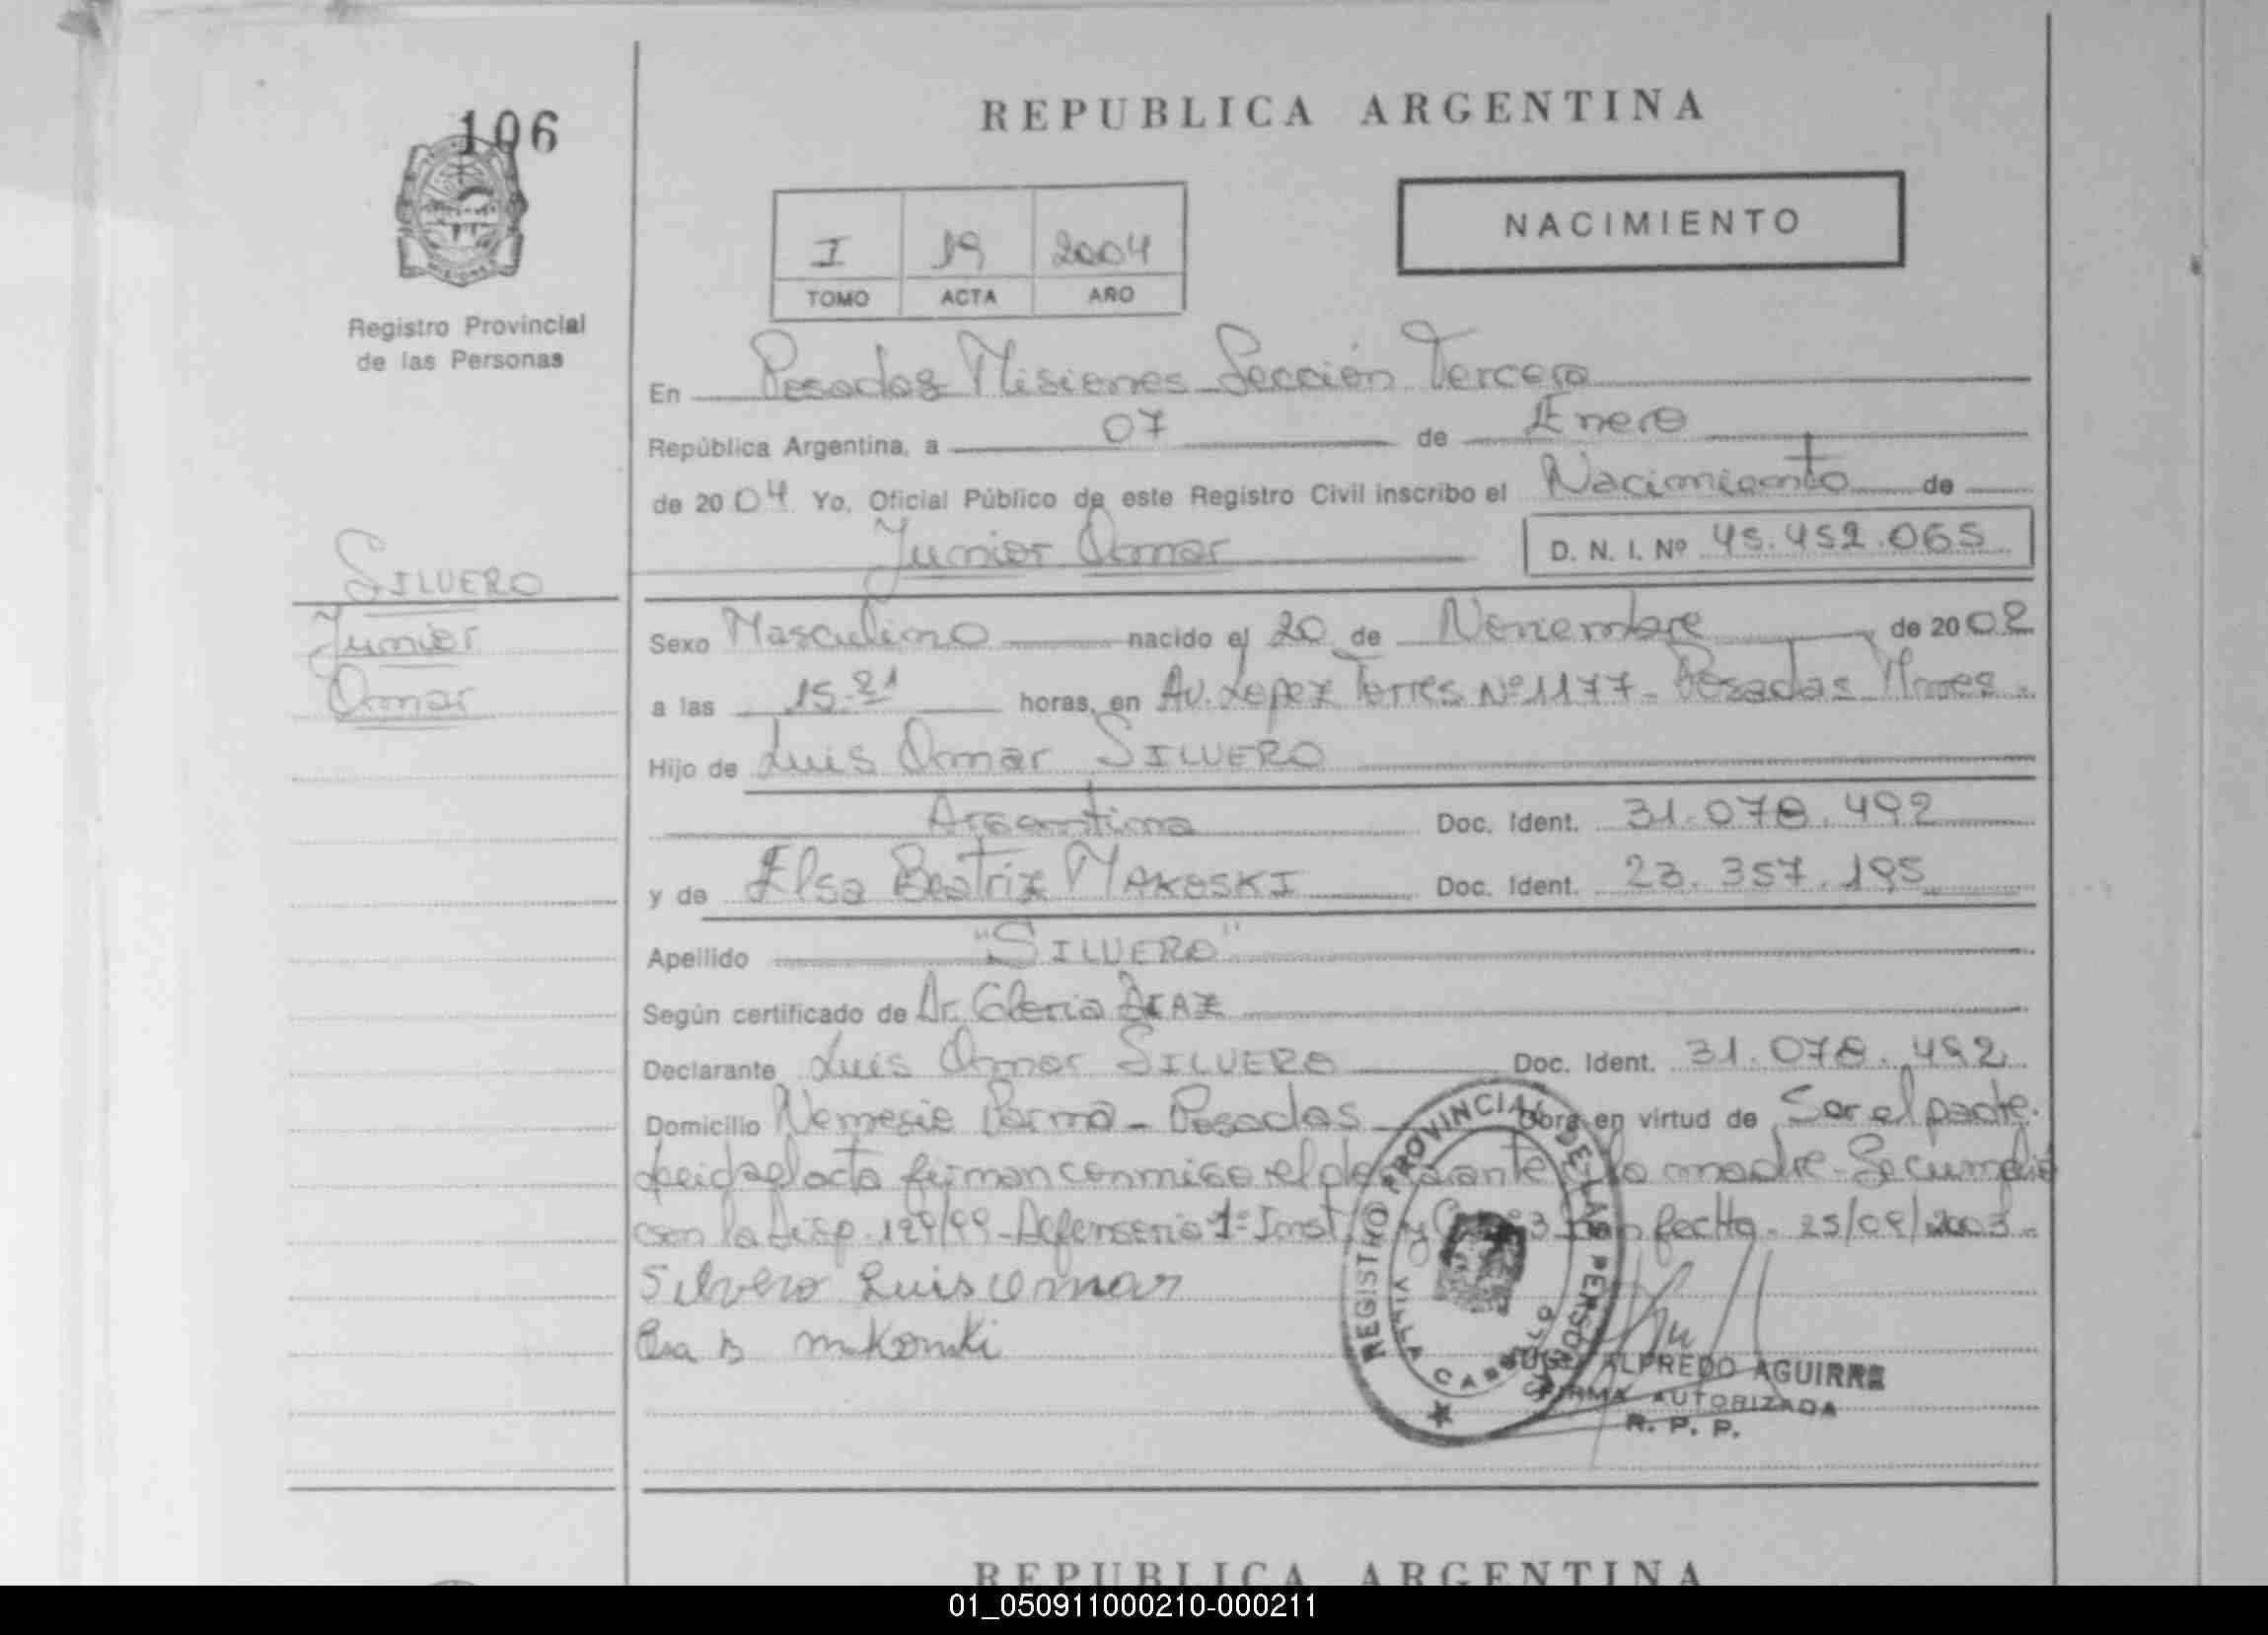 106
REPUBLICA ARGENTINA
NACIMIENTO
I 19 2004
TOMO ACTA AÑO
Registro Provincial
de las Personas
En Posadas Misiones Sección Tercera
República Argentina, a 07 de Enero
de 2004 Yo, Oficial Público de este Registro Civil inscribo el Nacimiento de
Junior Omar D. N. I. Nº 45.452.065
SILVERO
Junior
Omar
Sexo Masculino nacido el 20 de Noviembre de 2002
a las 15.21 horas, en Av. Lopez Torres Nº 1177 - Posadas Mnes.
Hijo de Luis Omar SILVERO
Argentina Doc. Ident. 31.078.492
y de Elsa Beatriz MAKOSKI Doc. Ident. 23.357.195
Apellido "SILVERO"
Según certificado de Dr. Gloria DIAZ
Declarante Luis Omar SILVERO Doc. Ident. 31.078.492
Domicilio Nemesio Parma - Posadas Obra en virtud de Ser el padre.
Leida el acta firman conmigo el declarante y la madre - Se cumplió
con la Disp. 199/99 - Defensoria 1º Inst. Nº3 con fecha - 25/09/2003 -
Silvero Luis Omar
REGISTRO PROVINCIAL DE LAS PERSONAS
VILLA CABELLO
ALFREDO AGUIRRE
FIRMA AUTORIZADA
R. P. P.
REPUBLICA ARGENTINA
01_050911000210-000211